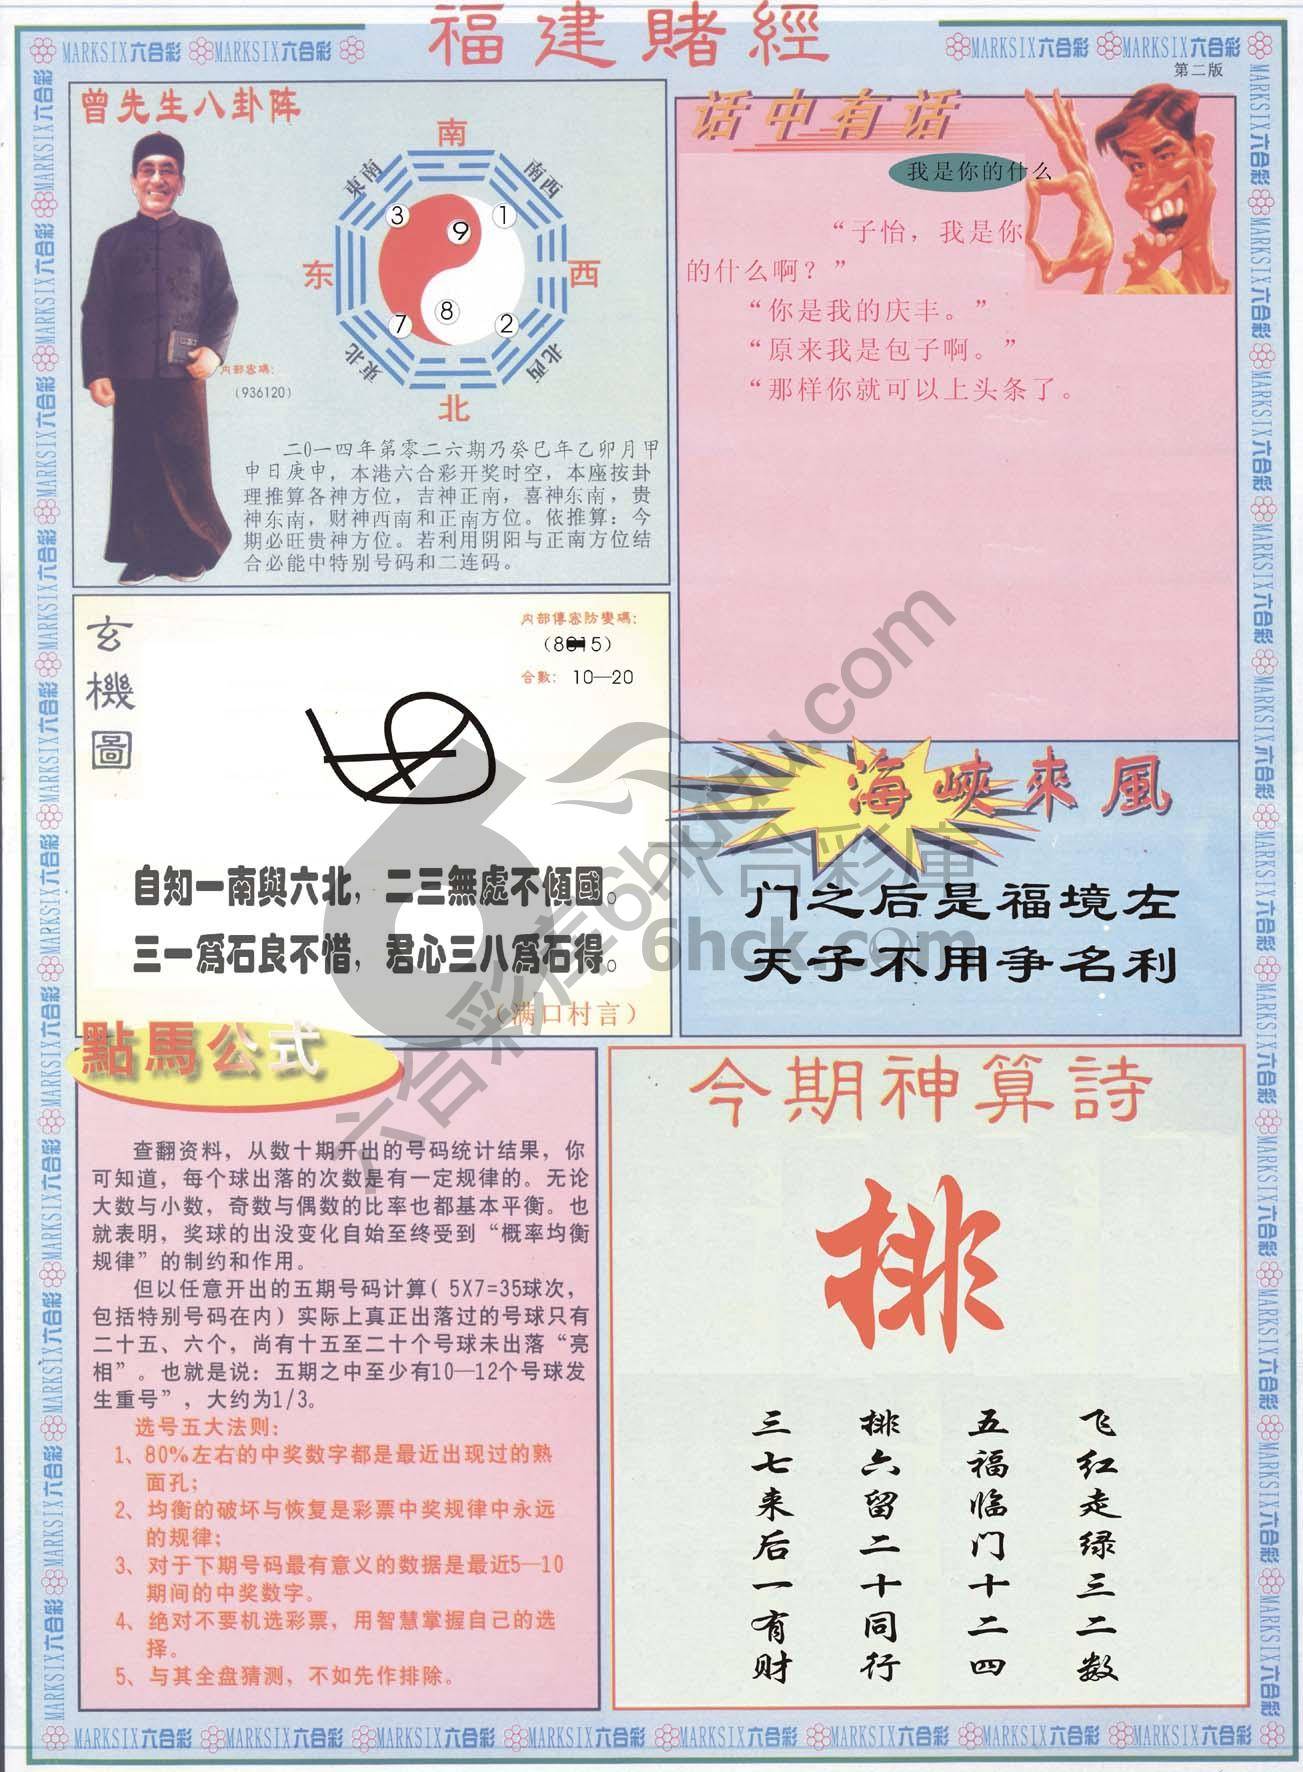 福建賭經
MARKSIX六合彩 MARKSIX六合彩
MARKSIX六合彩 MARKSIX六合彩
第二版
曾先生八卦阵
南
東南
南西
3
9
1
东
西
8
7
2
東北
北西
北
内部密碼:
(936120)
二0一四年第零二六期乃癸巳年乙卯月甲
申日庚申，本港六合彩开奖时空，本座按卦
理推算各神方位，吉神正南，喜神东南，贵
神东南，财神西南和正南方位。依推算：今
期必旺贵神方位。若利用阴阳与正南方位结
合必能中特别号码和二连码。
话中有话
我是你的什么
“子怡，我是你
的什么啊？”
“你是我的庆丰。”
“原来我是包子啊。”
“那样你就可以上头条了。
玄機圖
内部傳密防變碼:
合數: 10—20
自知一南與六北，二三無處不傾國。
三一爲石良不惜，君心三八爲石得。
（满口村言）
海峽來風
门之后是福境左
天子不用争名利
六合彩库6hpudu.com
六合彩庫
6hck.com
點馬公式
查翻资料，从数十期开出的号码统计结果，你
可知道，每个球出落的次数是有一定规律的。无论
大数与小数，奇数与偶数的比率也都基本平衡。也
就表明，奖球的出没变化自始至终受到“概率均衡
规律”的制约和作用。
但以任意开出的五期号码计算( 5X7=35球次，
包括特别号码在内）实际上真正出落过的号球只有
二十五、六个，尚有十五至二十个号球未出落“亮
相”。也就是说：五期之中至少有10—12个号球发
生重号”，大约为1/3。
选号五大法则:
1、80%左右的中奖数字都是最近出现过的熟
面孔;
2、均衡的破坏与恢复是彩票中奖规律中永远
的规律;
3、对于下期号码最有意义的数据是最近5—10
期间的中奖数字。
4、绝对不要机选彩票，用智慧掌握自己的选
择。
5、与其全盘猜测，不如先作排除。
今期神算詩
排
飞红走绿三二数
五福临门十二四
排六留二十同行
三七来后一有财
MARKSIX六合彩 MARKSIX六合彩 MARKSIX六合彩 MARKSIX六合彩 MARKSIX六合彩 MARKSIX六合彩 MARKSIX六合彩 MARKSIX六合彩